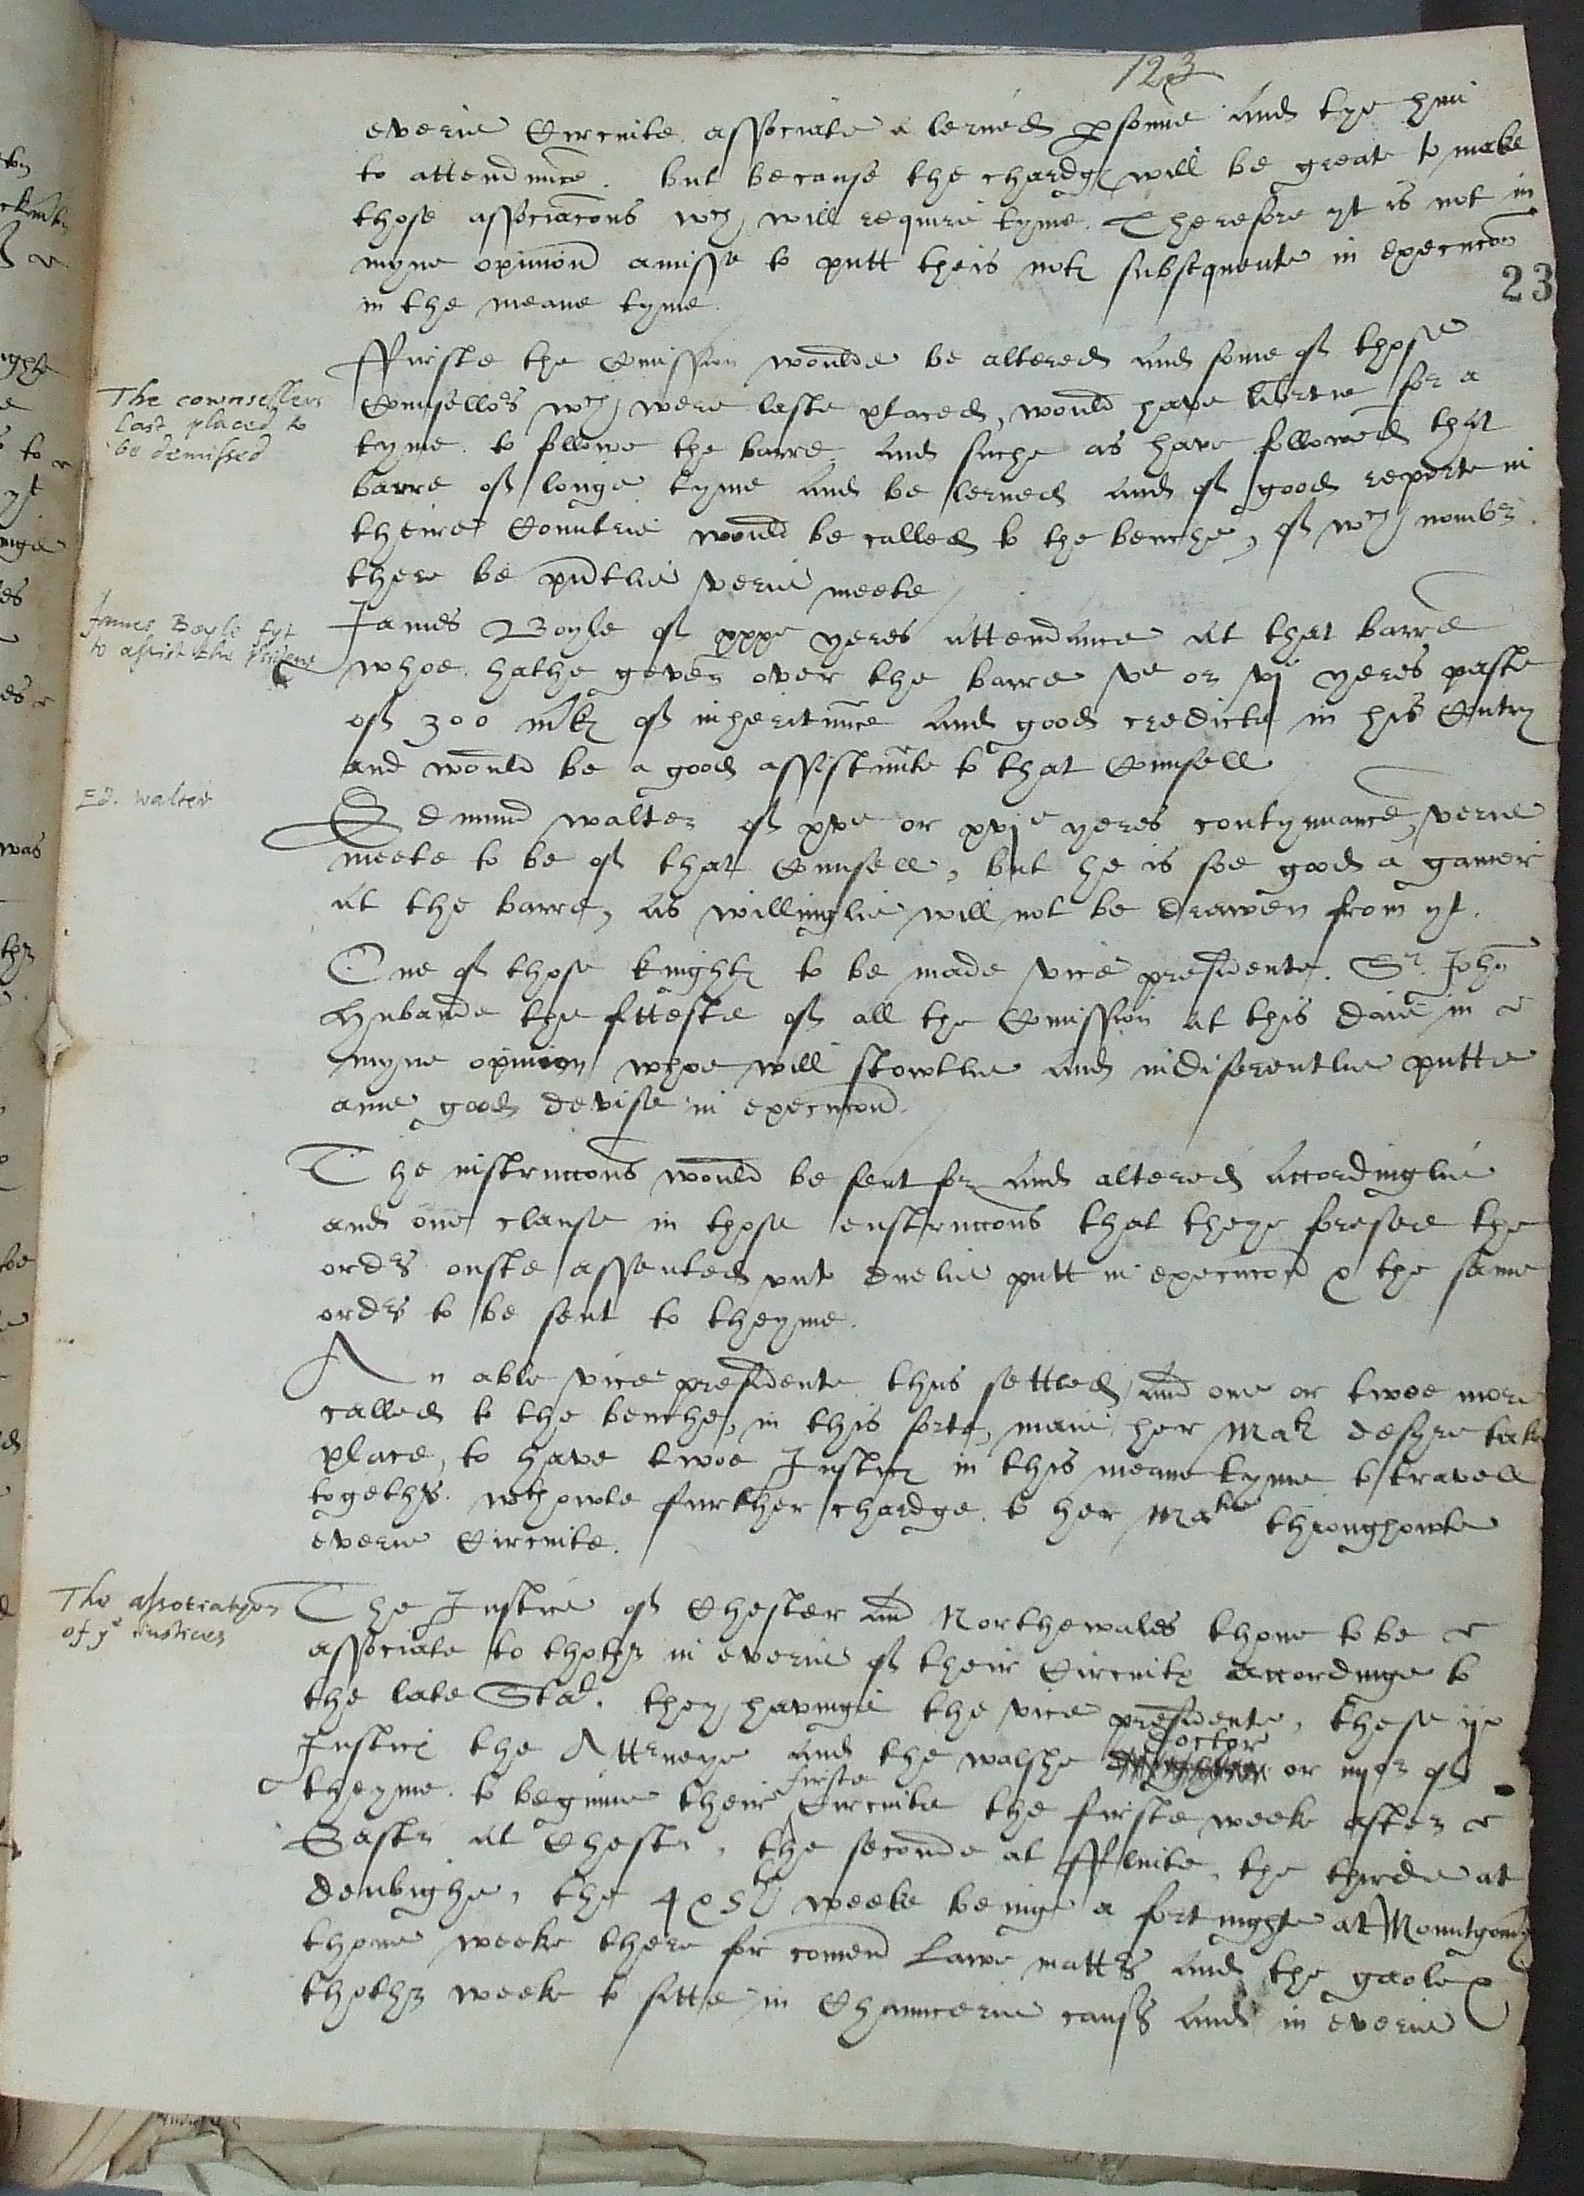 123
everie Circuite associate a lerned psonne and tye him
to attendance. but because the chardg will be great to make
those associacons wch will require tyme. Therefore yt is not in
myne opiniond amisse to putt theis notes subsequente in execucon
23
in the meane tyme.
ffirste the Comission woulde be altered and some of those
The cownsellers
last placed to
be demissed
Counsellors wch were laste placed, would have libertie for a
tyme to followe the barre and suche as have followed that
barre of longe tyme and be lerned and of good reporte in
theire Countrie would be called to the benche, of wch nombr
there be pntlie verie meete
James Boyle fyt
to assist the president
James Boyle of xxxe yeres attendance at that barre
whoe hathe geven over the barre ve or vj yeres paste
of 300 mks of inheritance and good credicte in his Cuntry
and would be a good assistante to that Counsell
Ed. walter
Edmund walter of xve or xvje yeres contynuance, verie
meete to be of that Counsell, but he is soe good a gainer
at the barre, as willinglie will not be drawen from yt.
One of those knights to be made vice presidente. Sr. John
Hubande the fitteste of all the Comission at this daie in
myne opinion whoe will stowtlie and indiferentlie putte
anie good devise in execucond.
The instruccons would be sent for and altered accordinglie
and one clause in those enstruccons that theye foresee the
orders onste assented unto duelie putt in execucond & the same
orders to be sent to theyme.
An able vice presidente thus settled and one or twoe more
called to the benche, in this sorte, maie her Mats desyre take
place, to have twoe Justics in this meane tyme to travell
togethr. wthowte further chardge to her Matie throughowte
everie Circuite.
The assotiatyon
of ye iustices
The Justice of Chester and Northewales thone to be
associate to thothr in everie of their Circuits accordinge to
the late Stat. they havinge the vice presidente, these ije
Justics the Atturneye and the walshe Doctor or iijor of
theyme. to beginne their firste Circuite the firste weeke after
Eastr at Chestr, the seconde at fflinte, the thirde at
denbighe, the 4 & 5th weeke beinge a fortnighte at Mountgomry
thone weeke there for comend Lawe mattrs and the gaole &
thothr weeke to sitte in Chauncerie causs and in everie